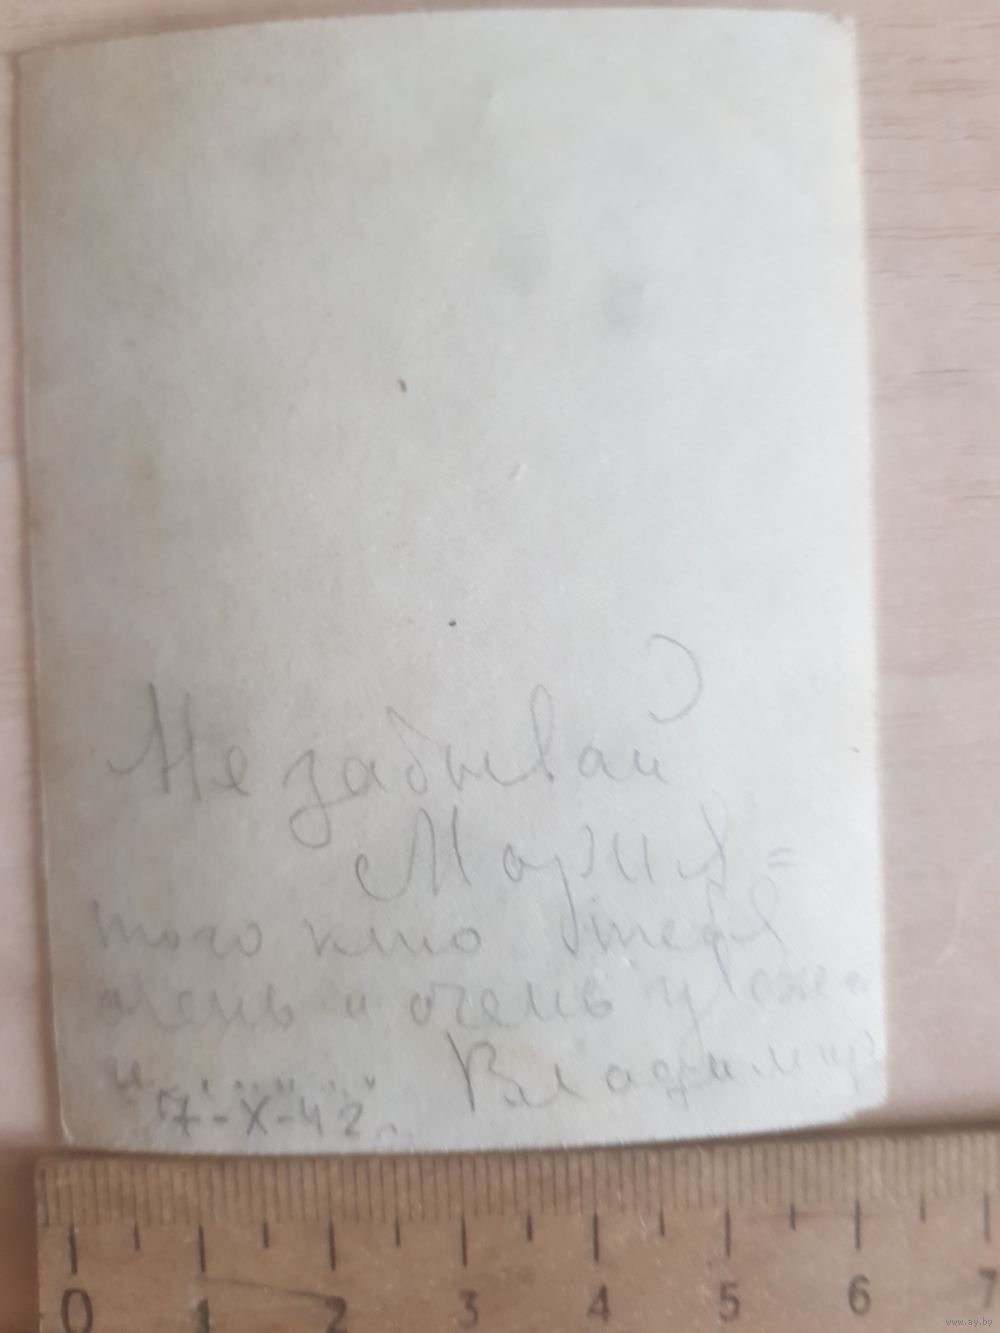 Не забывай
Мария =
того кто тебя
очень и очень уважа
и . . . . . . Владимир
7-X-42 г.
0 1 2 3 4 5 6 7
www.ay.by